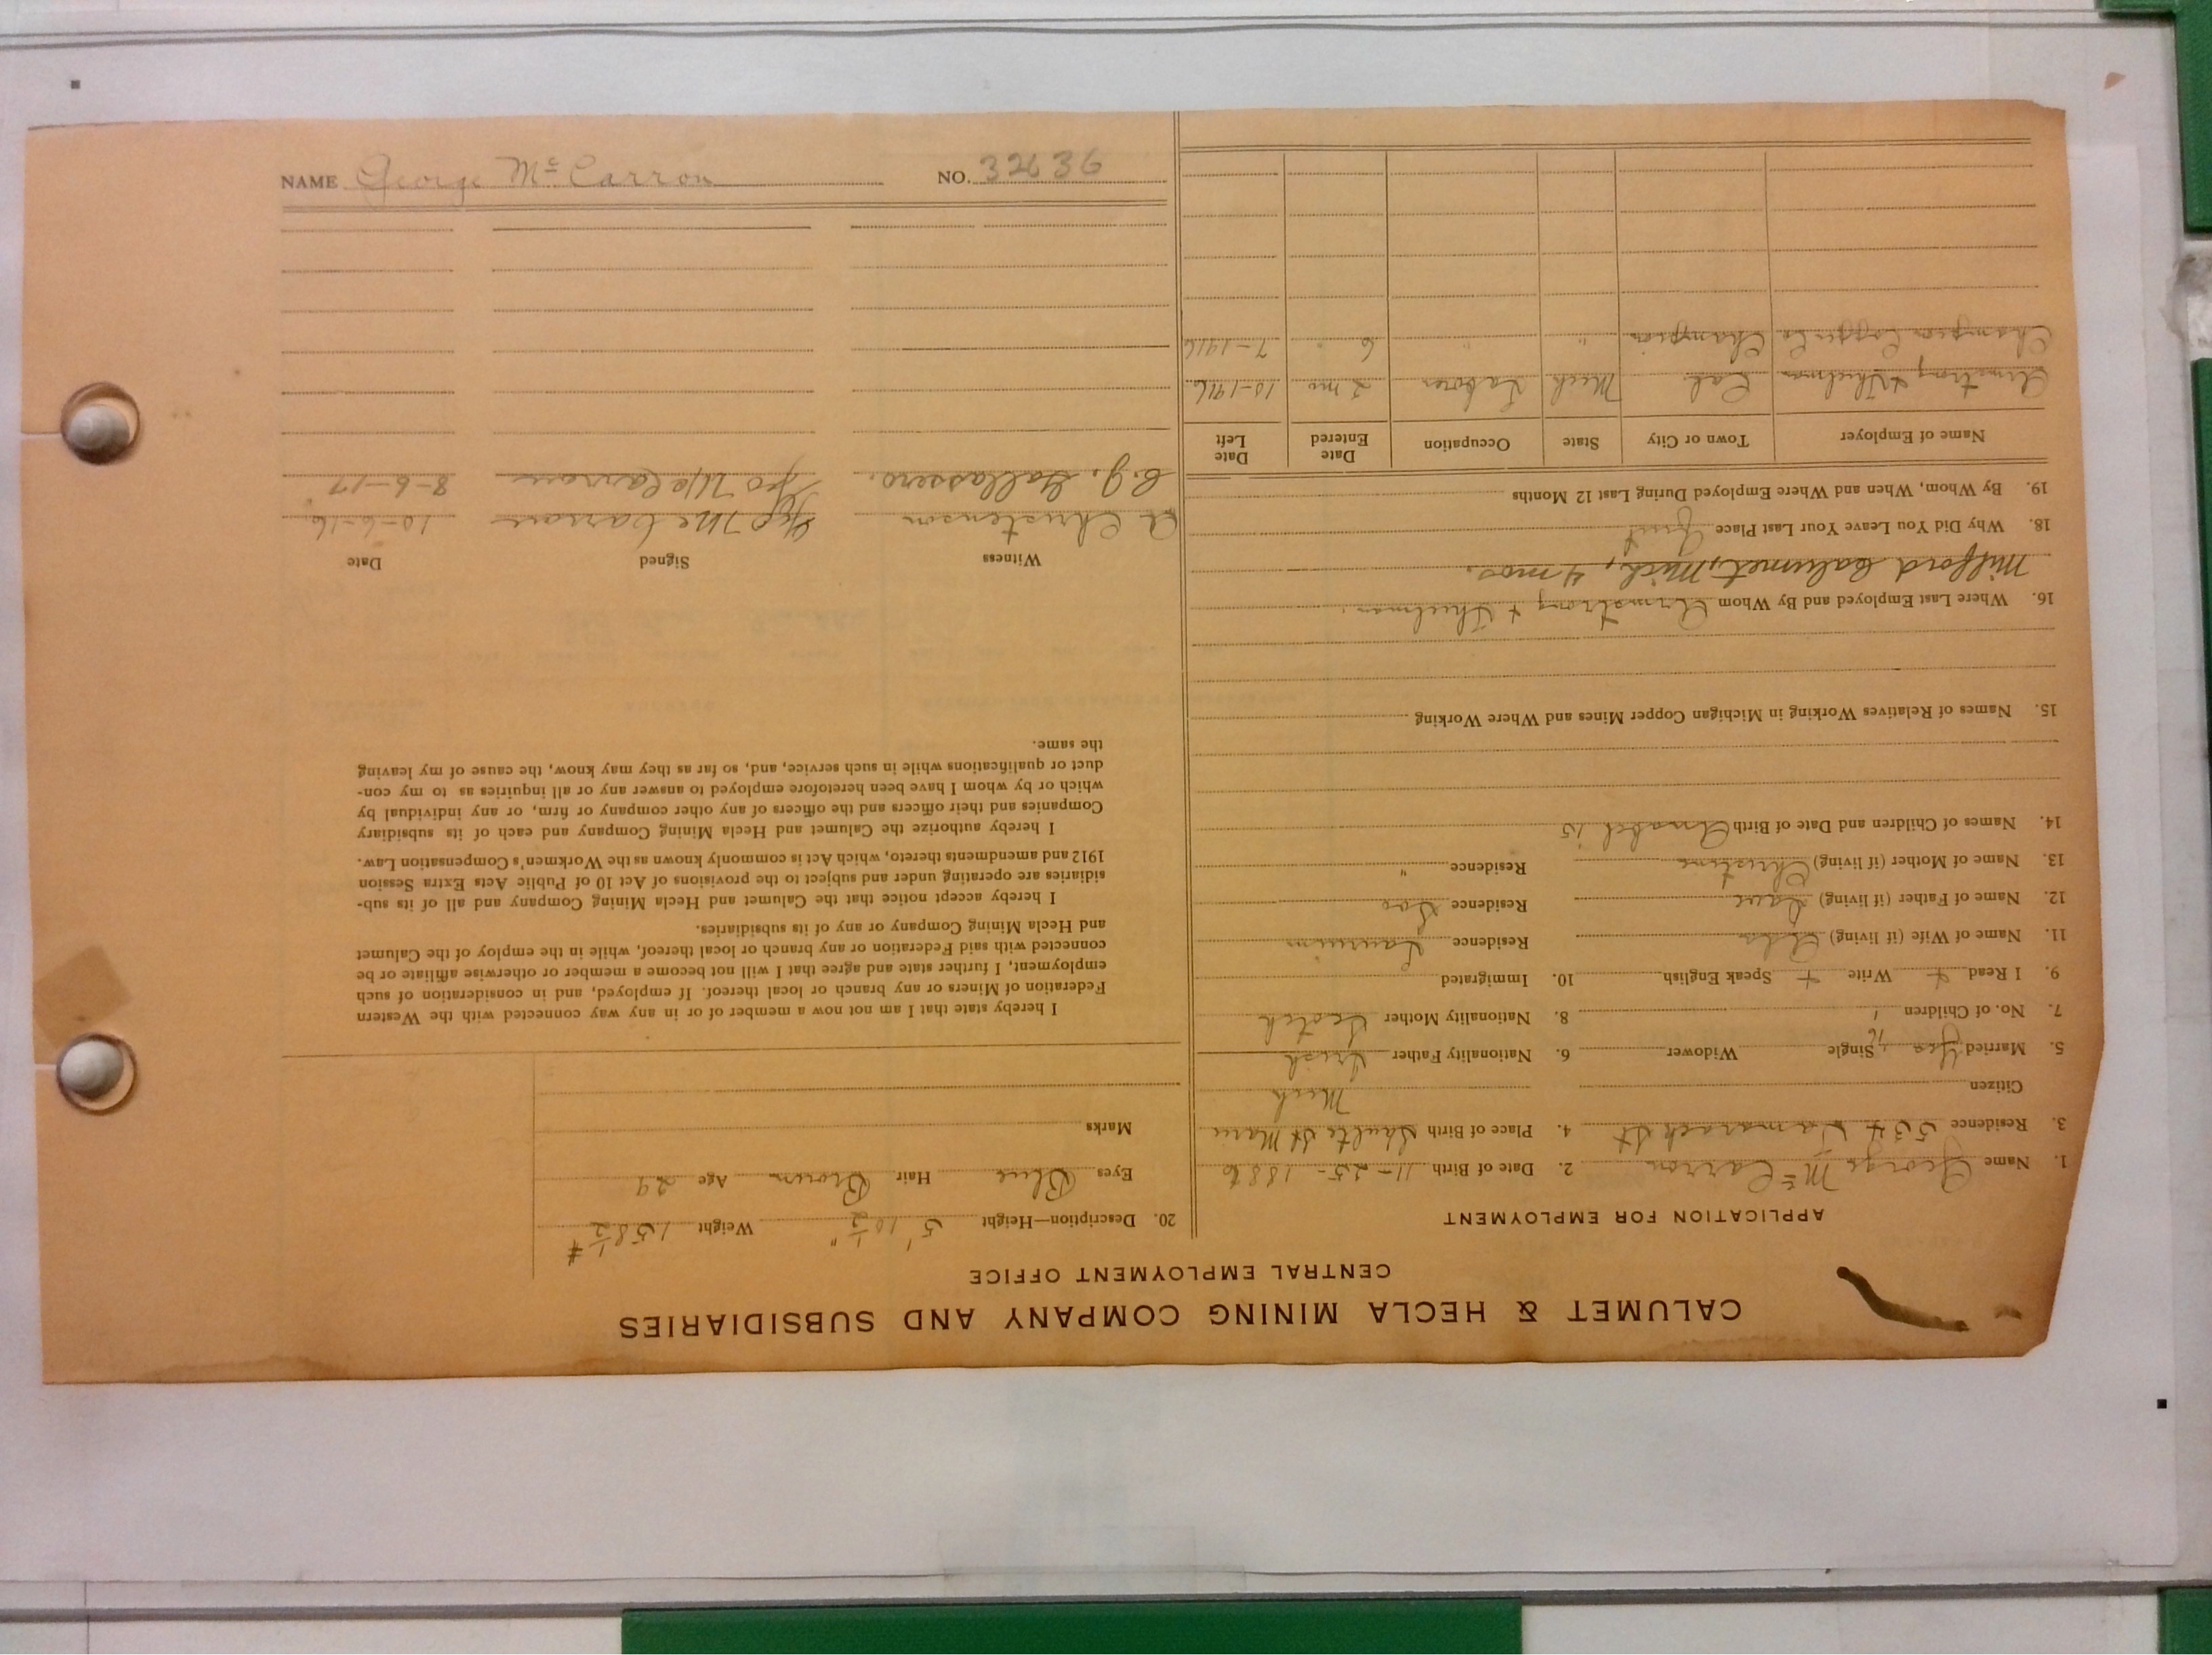 CALUMET & HECLA MINING COMPANY AND SUBSIDIARIES
CENTRAL EMPLOYMENT OFFICE
APPLICATION FOR EMPLOYMENT
1. Name George Mc Carron 2. Date of Birth 11-25-1886
3. Residence 554 Tamarack St 4. Place of Birth Saulte St Marie
Citizen Mich
5. Married Yes Single Widower 6. Nationality Father Irish
7. No. of Children 1 8. Nationality Mother Scotch
9. I Read Write Speak English 10. Immigrated
11. Name of Wife (if living) Residence Laurium
12. Name of Father (if living) Residence Soo
13. Name of Mother (if living) Christine Residence "
14. Names of Children and Date of Birth Annabel 15
15. Names of Relatives Working in Michigan Copper Mines and Where Working
16. Where Last Employed and By Whom Armstrong + Thielman.
Milford Calumet, Mich, 4 mos.
18. Why Did You Leave Your Last Place Quit
19. By Whom, When and Where Employed During Last 12 Months
Name of Employer Town or City State Occupation Date Entered Date Left
Armstrong + Thielman Cal. Mich Laborer 2 mo 10-1916
Champion Copper Co Champion " " 6 " 7-1916
20. Description—Height 5' 10 1/2" Weight 158 1/2 #
Eyes Blue Hair Brown Age 29
Marks
I hereby state that I am not now a member of or in any way connected with the Western
Federation of Miners or any branch or local thereof. If employed, and in consideration of such
employment, I further state and agree that I will not become a member or otherwise affiliate or be
connected with said Federation or any branch or local thereof, while in the employ of the Calumet
and Hecla Mining Company or any of its subsidiaries.
I hereby accept notice that the Calumet and Hecla Mining Company and all of its sub-
sidiaries are operating under and subject to the provisions of Act 10 of Public Acts Extra Session
1912 and amendments thereto, which Act is commonly known as the Workmen's Compensation Law.
I hereby authorize the Calumet and Hecla Mining Company and each of its subsidiary
Companies and their officers and the officers of any other company or firm, or any individual by
which or by whom I have been heretofore employed to answer any or all inquiries as to my con-
duct or qualifications while in such service, and, so far as they may know, the cause of my leaving
the same.
Witness Signed Date
A Christenson Geo McCarron 10-6-16
C. J. Gallassero. Geo McCarron 8-6-17
NAME George Mc Carron NO. 32636